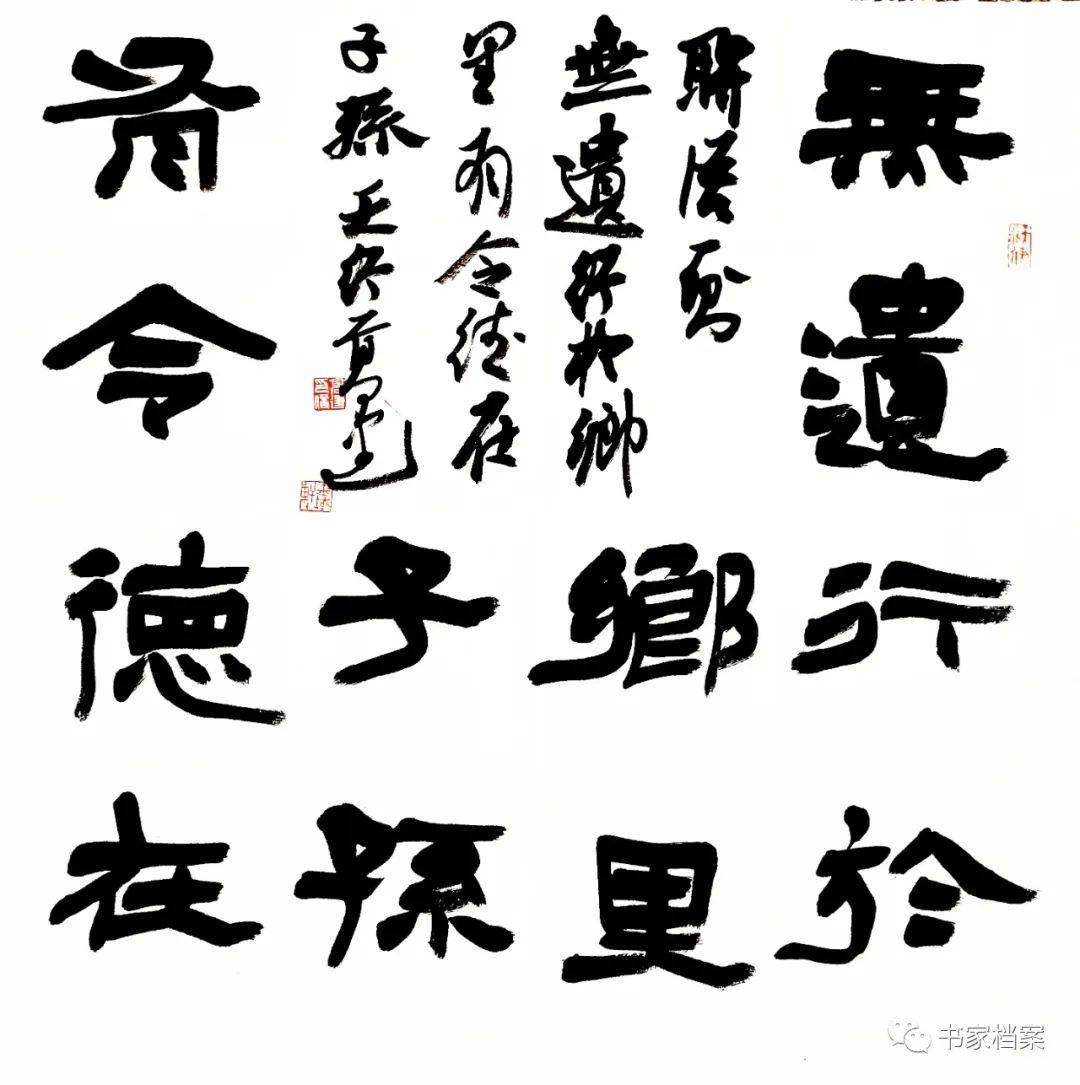 無遺行於
鄉里
有令德在
子孫
聯語為
無遺行於鄉
里有令德在
子孫
书家档案